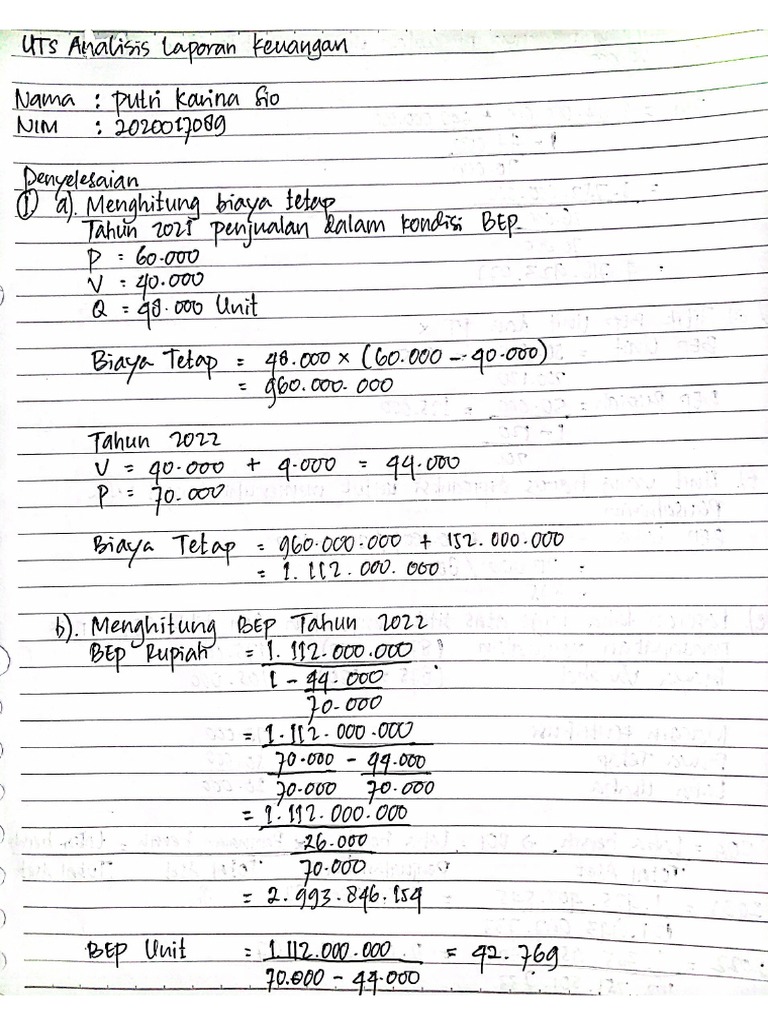 UTS Analisis Laporan Keuangan
Nama : Putri Karina Sio
NIM : 2020017089
Penyelesaian
① a). Menghitung biaya tetap
Tahun 2021 penjualan dalam kondisi BEP.
P = 60.000
V = 40.000
Q = 48.000 Unit
Biaya Tetap = 48.000 × (60.000 - 40.000)
= 960.000.000
Tahun 2022
V = 40.000 + 4.000 = 44.000
P = 70.000
Biaya Tetap = 960.000.000 + 152.000.000
= 1.112.000.000
b). Menghitung BEP Tahun 2022
BEP Rupiah = 1.112.000.000
1 - 44.000
70.000
= 1.112.000.000
70.000 - 44.000
70.000 70.000
= 1.112.000.000
26.000
70.000
= 2.993.846.154
BEP Unit = 1.112.000.000 = 42.769
70.000 - 44.000